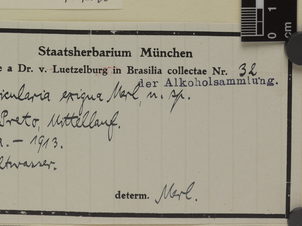 Staatsherbarium München
e a Dr. v. Luetzelburg in Brasilia collectae Nr. 32
der Alkoholsammlung.
icularia exigua Merl, n. sp.
Preto, Mittellauf.
a. – 1913.
ltwasser.
determ. Merl.
0 1